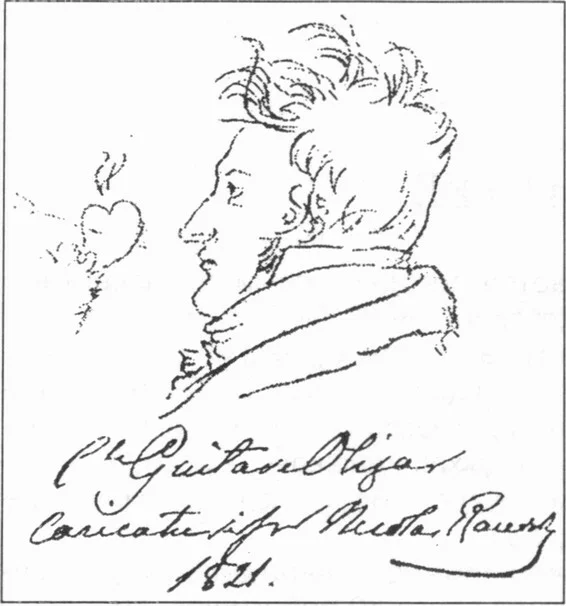 Cte Gustave Olizar
caricaturé par Nicolas
1821.